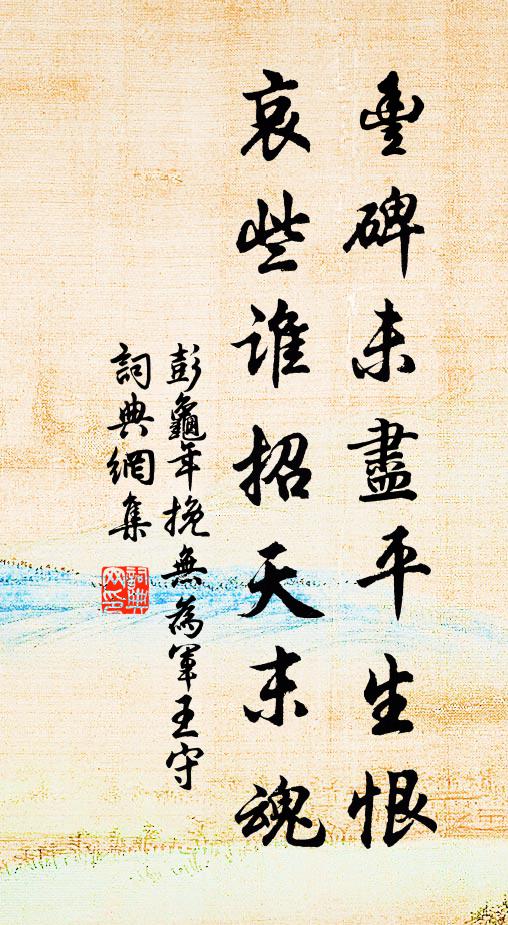 豐碑未盡平生恨
哀些誰招天末魂
彭龜年挽無為軍王守
詞典網集
詞典網印